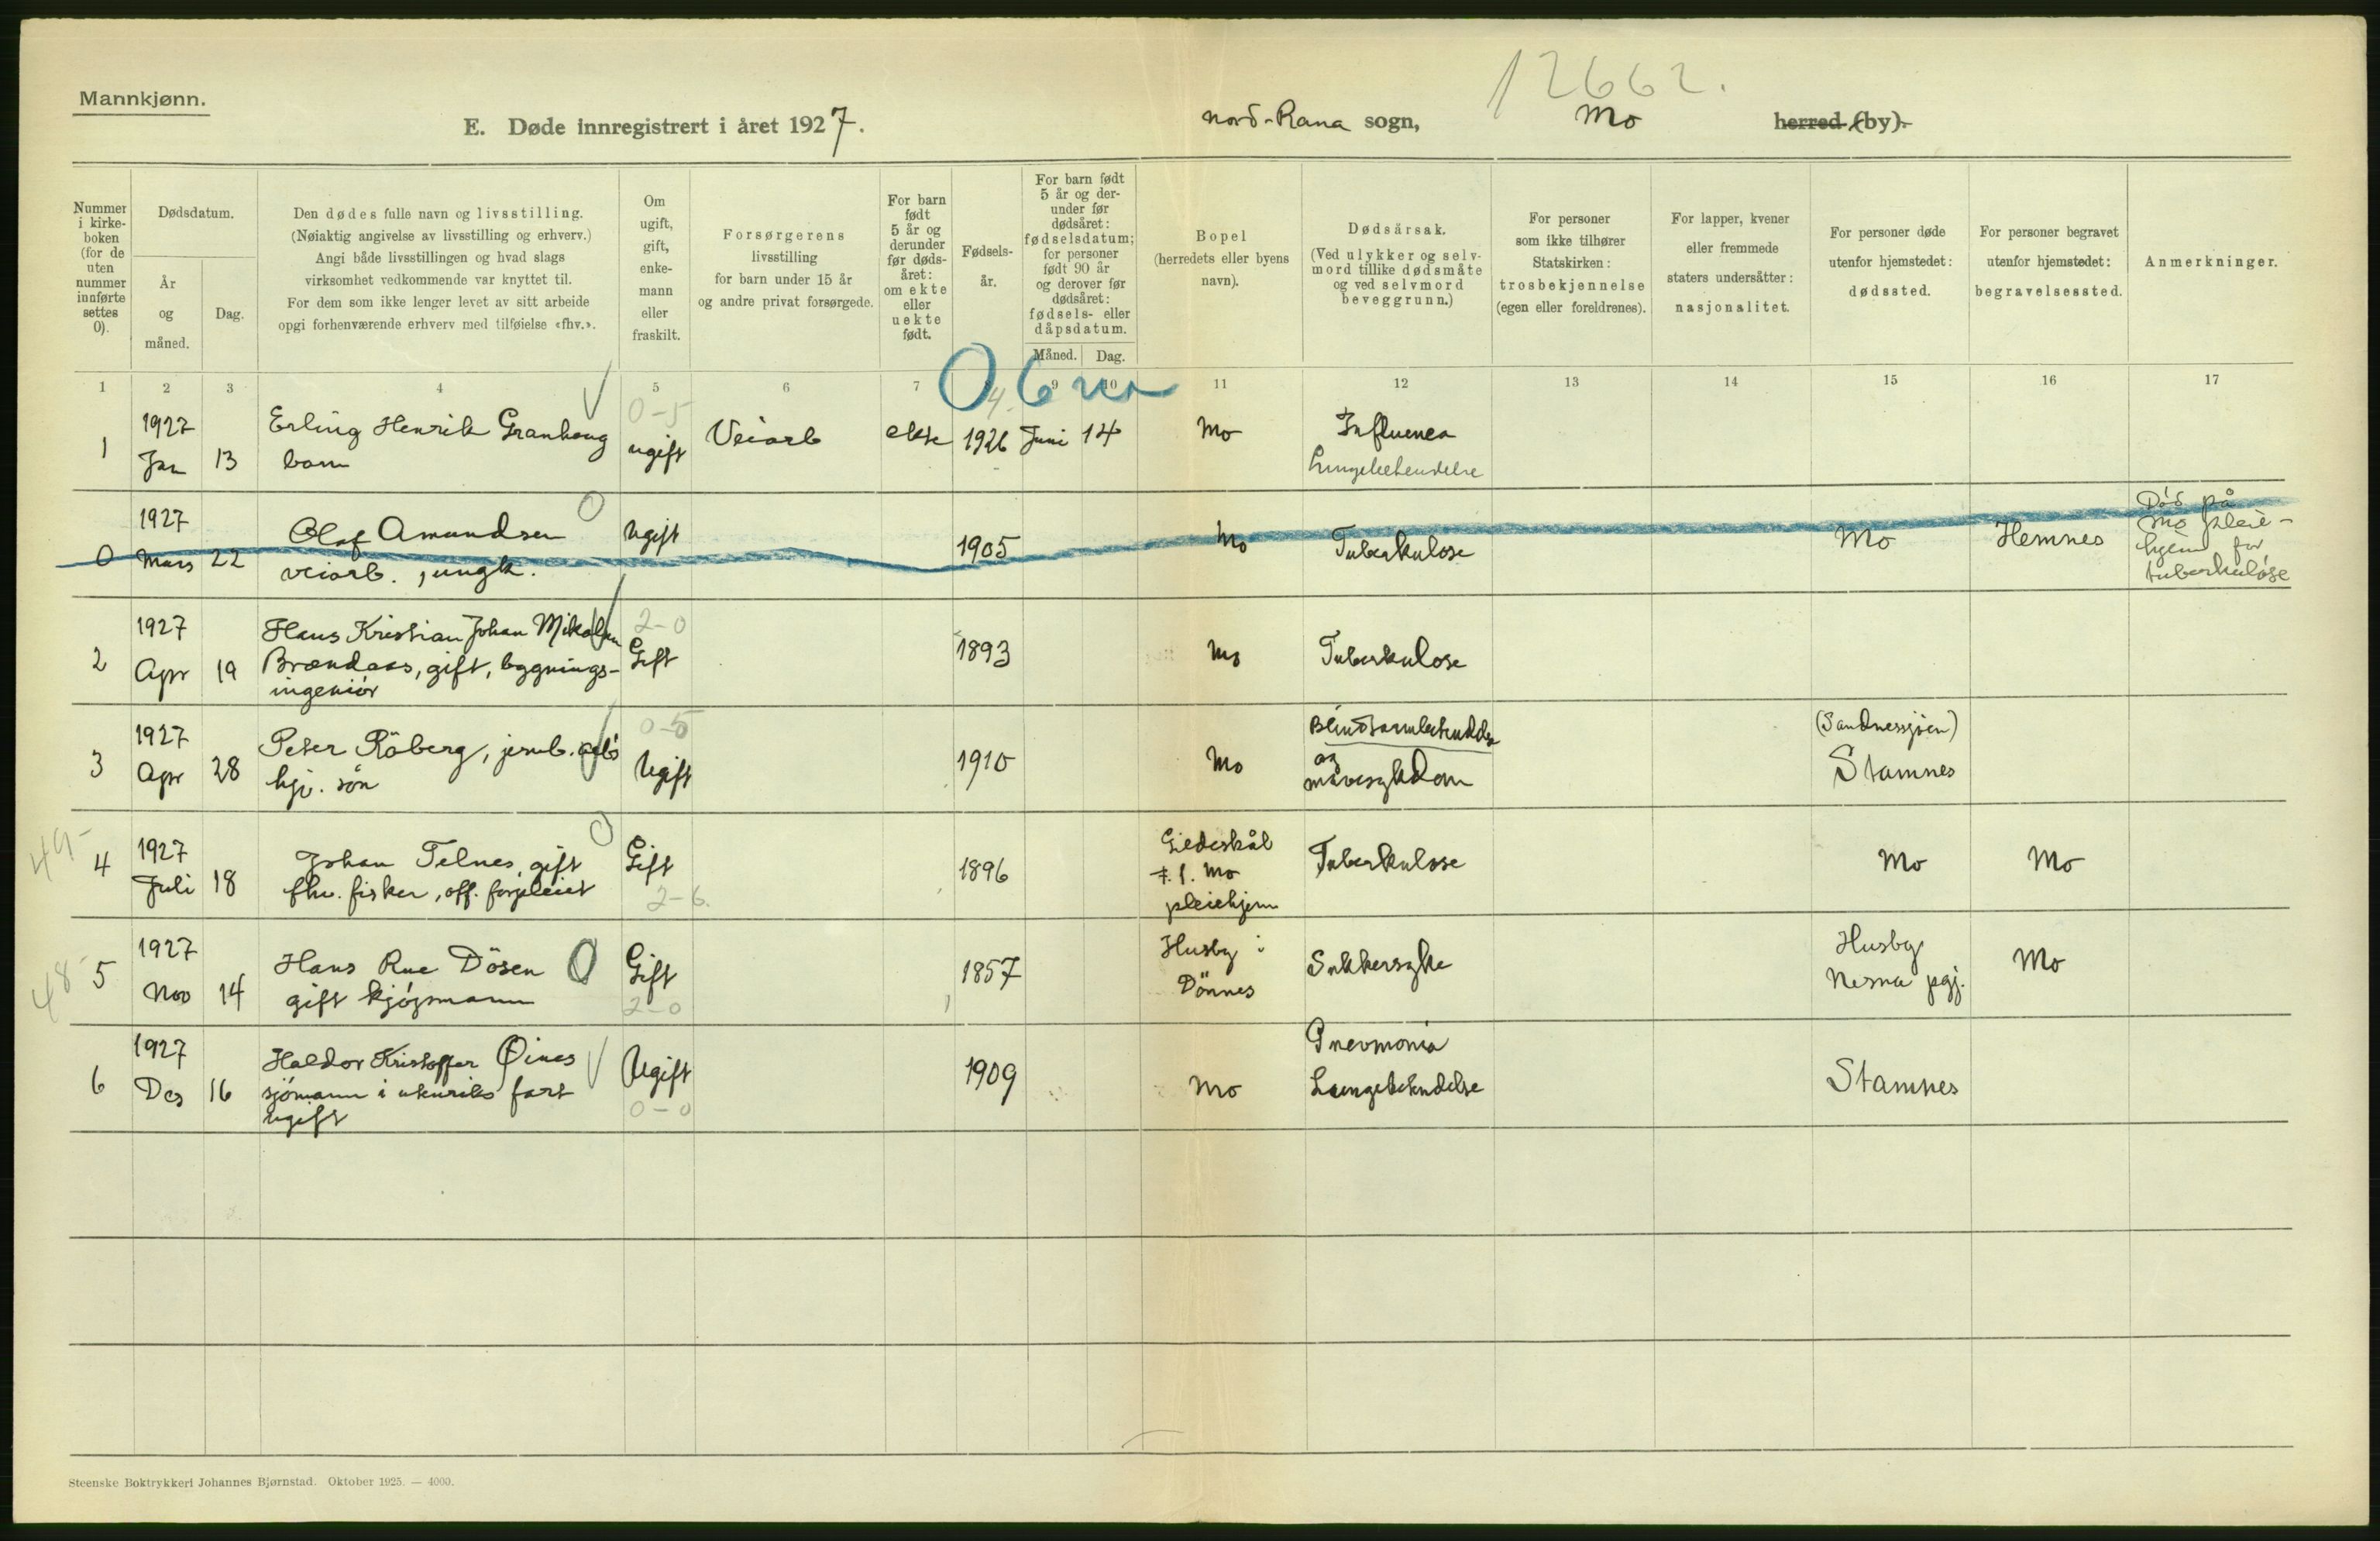 12662.
Mannkjønn.
E. Døde innregistrert i året 1927.
Nord-Rana sogn, Mo herred (by).
Nummer i kirke-boken (for de uten nummer innførte settes 0).
Dødsdatum.
År og måned.
Dag.
Den dødes fulle navn og livsstilling.
(Nøiaktig angivelse av livsstilling og erhverv.)
Angi både livsstillingen og hvad slags
virksomhet vedkommende var knyttet til.
For dem som ikke lenger levet av sitt arbeide
opgi forhenværende erhverv med tilføielse «fhv.».
Om ugift, gift, enke-mann eller fraskilt.
Forsørgerens
livsstilling
for barn under 15 år
og andre privat forsørgede.
For barn født 5 år og derunder før døds-året: om ekte eller uekte født.
Fødsels-år.
For barn født 5 år og der-under før dødsåret: fødselsdatum; for personer født 90 år og derover før dødsåret: fødsels- eller dåpsdatum.
Måned. Dag.
Bopel
(herredets eller byens
navn).
Dødsårsak.
(Ved ulykker og selv-
mord tillike dødsmåte
og ved selvmord
beveggrunn.)
For personer
som ikke tilhører
Statskirken:
trosbekjennelse
(egen eller foreldrenes).
For lapper, kvener
eller fremmede
staters undersåtter:
nasjonalitet.
For personer døde
utenfor hjemstedet:
dødssted.
For personer begravet
utenfor hjemstedet:
begravelsessted.
Anmerkninger.
1 2 3 4 5 6 7 8 9 10 11 12 13 14 15 16 17
1 1927 Jan 13 Erling Henrik Granhaug
barn
0-5 ugift Veiarb ekte 1926 Juni 14 Mo Influenca
Lungebetendelse
0 1927 Mars 22 Olaf Amundsen
veiarb., ungk.
Ugift 1905 Mo Tuberkulose Mo Hemnes
Død på
Mo pleie-
hjem for
tuberkuløse
2 1927 Apr 19 Hans Kristian Johan Mikalsen
Brændaas, gift, bygnings-
ingeniör
2-0 Gift 1893 Mo Tuberkulose
3 1927 Apr 28 Peter Råberg, jernb.
hj. sön
0-5 Ugift 1910 Mo Blindtarmbetendelse
og
mavesykdom
(Sandnessjöen)
Stamnes
49 4 1927 Juli 18 Johan Telnes, gift
fhv. fisker, off. forpleiet
Gift 2-6. 1896 Gildeskål
f. t. Mo
pleiehjem
Tuberkulose Mo Mo
48 5 1927 Nov 14 Hans Rue Dösen
gift kjöpmann
Gift 2-0 1857 Husby i
Dönnes
Sukkersyke Husby
Nesna pgj.
Mo
6 1927 Des 16 Haldor Kristoffer Øines
sjömann i utenriks fart
ugift
Ugift 0-0 1909 Mo Pnevmonia
Lungebetendelse
Stamnes
Steenske Boktrykkeri Johannes Bjørnstad. Oktober 1925. — 4000.